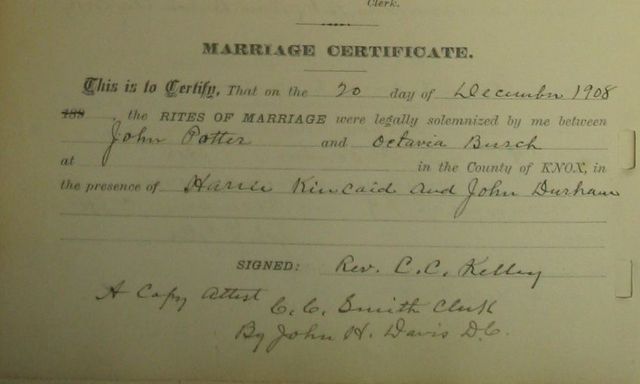 Clerk.
MARRIAGE CERTIFICATE.
This is to Certify, That on the 20 day of December 1908
188 , the RITES OF MARRIAGE were legally solemnized by me between
John Potter and Octavia Busch
at in the County of KNOX, in
the presence of Kincaid and John Durham
SIGNED: Rev. C. C. Kelley
A Copy Attest C. C. Smith Clerk
By John H. Davis D.C.